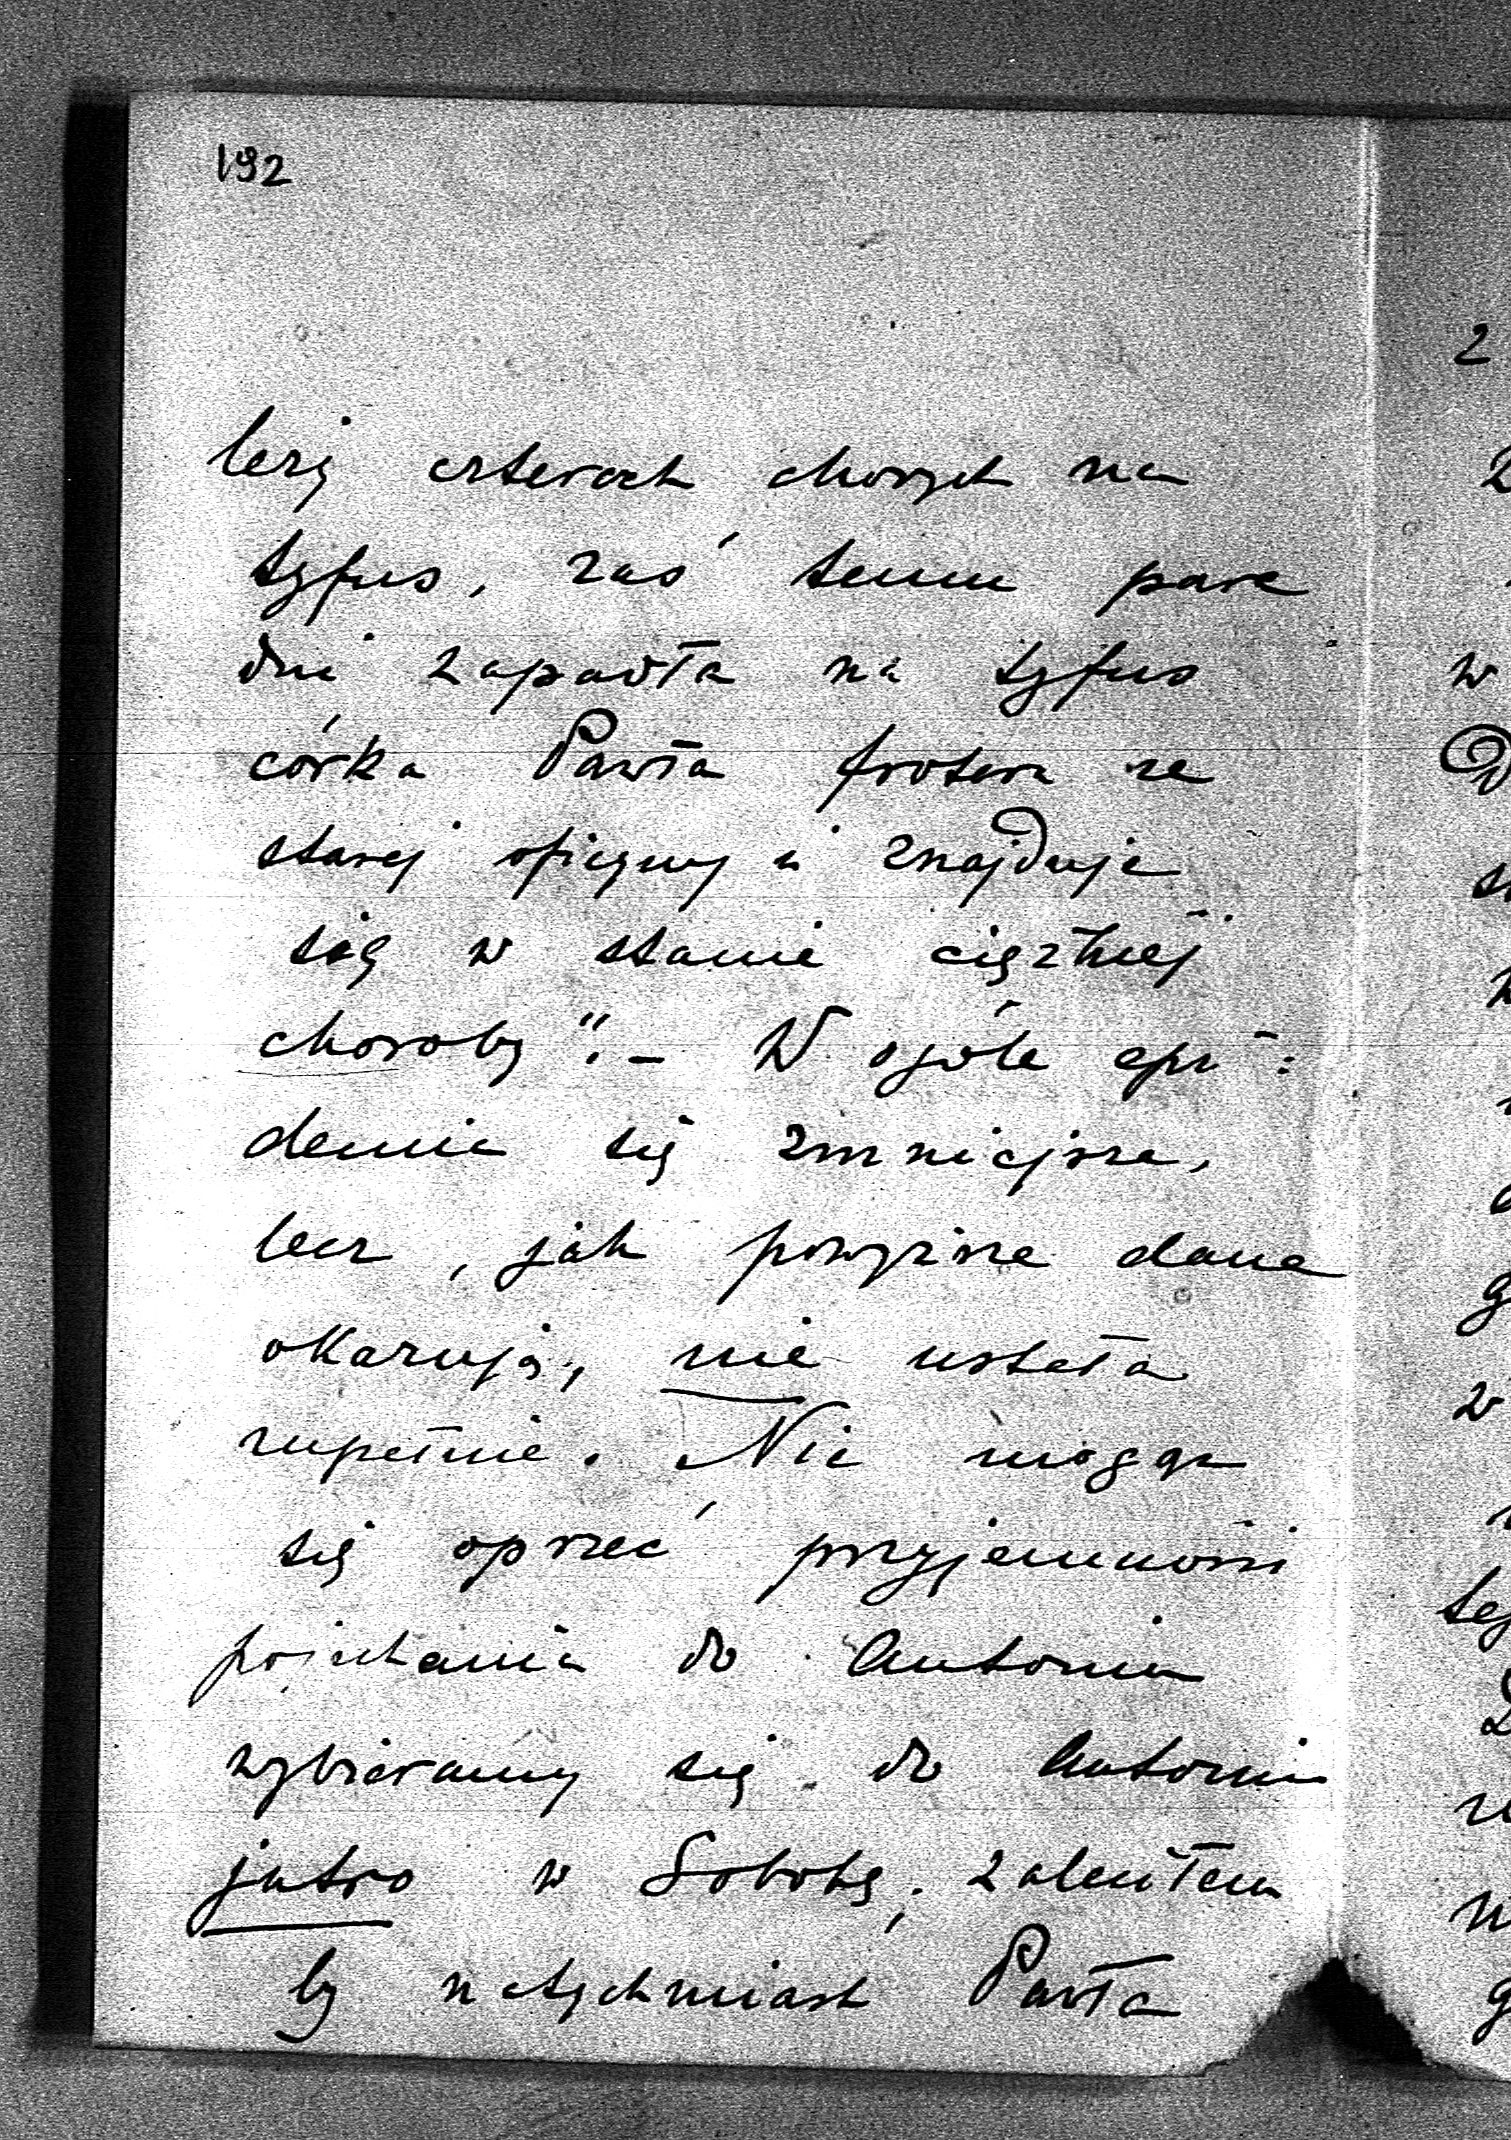 192
leży czterech chorych na
tyfus, zaś temu parę
dni zapadła na tyfus
córka Pawła frotera ze
starej oficyny i znajduje
się w stanie ciężkiej
choroby". – W ogóle epi:
demia się zmniejsza,
lecz, jak powyższe dane
okazują, nie ustała
zupełnie. Nie mogąc
się oprzeć przyjemności
pojechania do Antonin
wybieramy się do Antonin
jutro w Sobotę; zaleciłem
by natychmiast Pawła